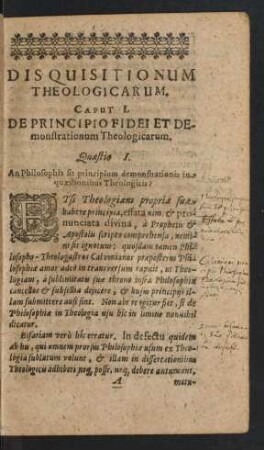 DISQUISITIONUM
THEOLOGICARUM,
CAPUT I.
DE PRINCIPIO FIDEI ET DE-
monstrationum Theologicarum.
Quæstio I.
An Philosophia sit principium demonstrationis in
quæstionibus Theologicis?
ETSI Theologiam propria sua
habere principia, effata nim. & pro-
nunciata divina, à Prophetis &
Apostolis scripto comprehensa, nemi-
ni sit ignotum; quosdam tamen Phi-
losopho-Theologastros Calvinianos præposterus Phi-
losophiæ amor adeò in transversum rapuit, ut Theo-
logiam, à sublimitate suæ throno infra Philosophiæ
cancellos & subsellia dejicere, & hujus principiis il-
lam submittere ausi sint. Non abs re igitur fuerit, si de
Philosophiæ in Theologia usu hîc in limine nonnihil
dicatur.
Bifariam verò hîc erratur. In defectu quidem
ab his, qui omnem prorsus Philosophiæ usum ex Theo-
logia sublatum volunt, & illam in dissertationibus
Theologicis adhiberi neq; posse, neq; debere autumant,
A
mutu-